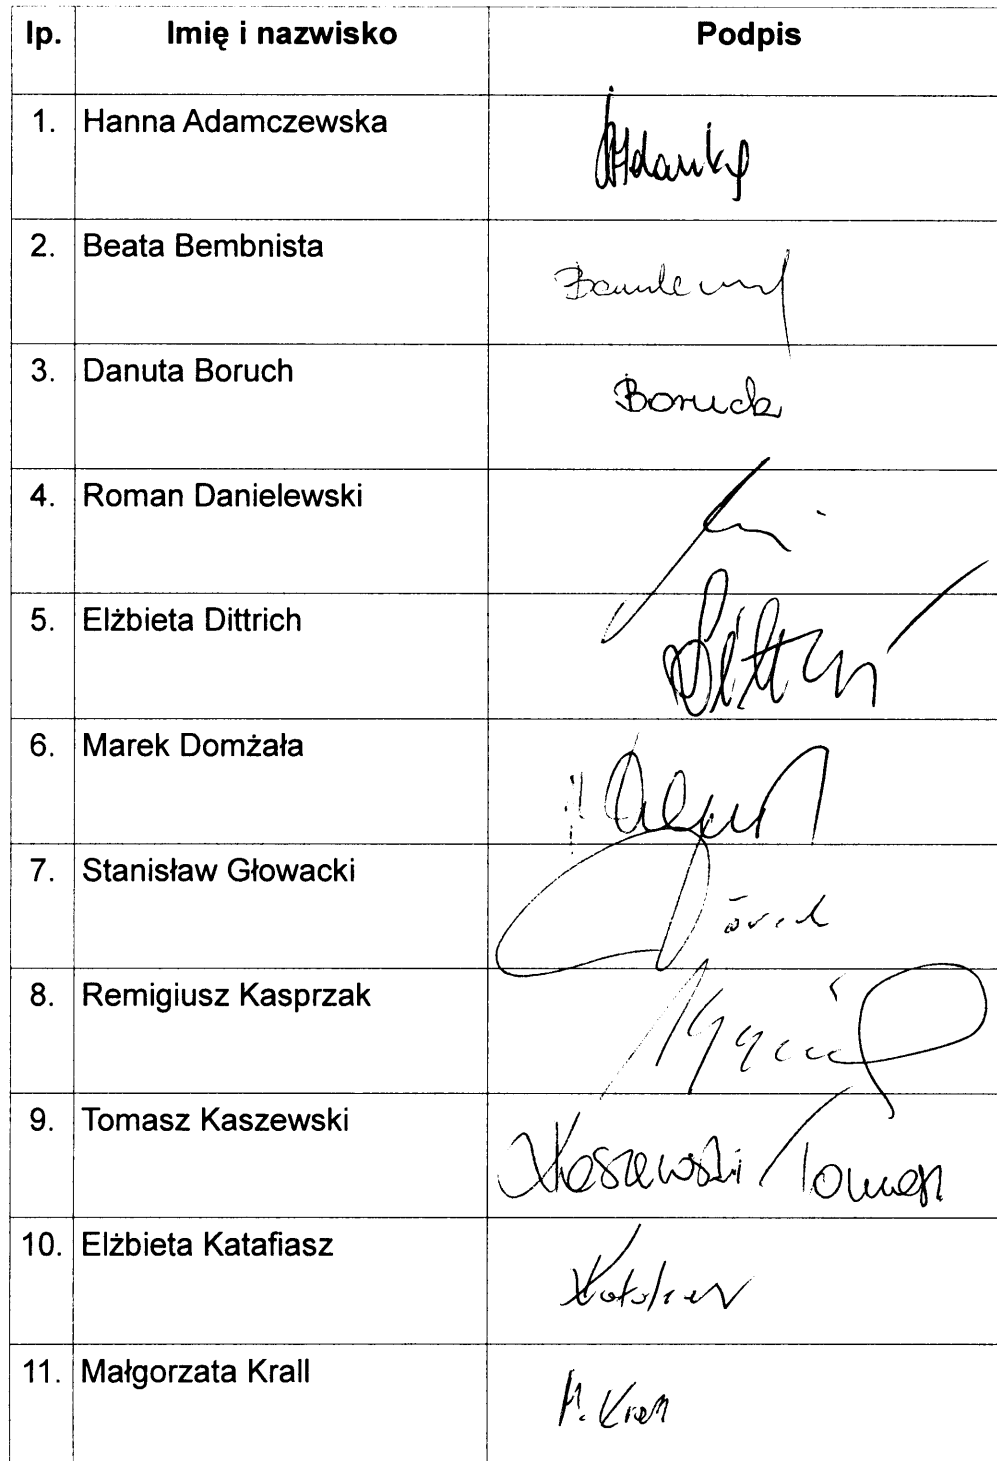 lp. Imię i nazwisko Podpis
1. Hanna Adamczewska
2. Beata Bembnista
3. Danuta Boruch Boruch
4. Roman Danielewski
5. Elżbieta Dittrich
6. Marek Domżała
7. Stanisław Głowacki
8. Remigiusz Kasprzak
9. Tomasz Kaszewski Kaszewski Tomasz
10. Elżbieta Katafiasz
11. Małgorzata Krall M. Krall